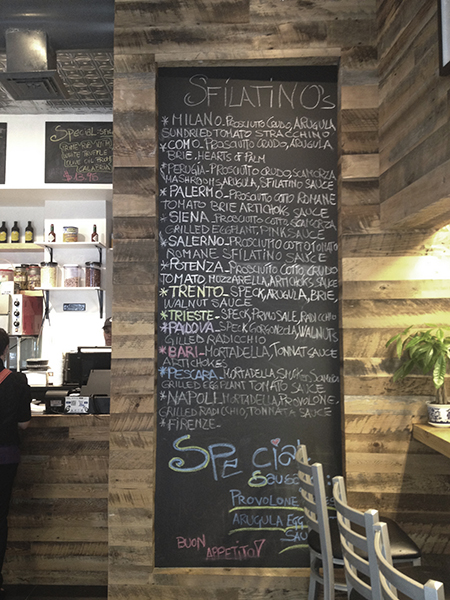 SFiLATiNO's
*MILANO-PROSCIUTTO CRUDO, ARUGULA
SUNDRIED TOMATO STRACCHINO
*COMO-PROSCIUTTO CRUDO, ARUGULA
BRIE, HEARTS OF PALM
*PERUGIA-PROSCIUTTO CRUDO, SCAMORZA
MASHROOMS, ARUGULA, SFILATINO SAUCE
*PALERMO-PROSCIUTTO COTTO ROMANE
TOMATO BRIE ARTICHOKS SAUCE
*SIENA-PROSCIUTTO COTTO, SCAMORZA
GRILLED EGGPLANT, PINK SAUCE
*SALERNO-PROSCIUTTO COTTO TOMATO
ROMANE SFILATINO SAUCE
*POTENZA-PROSCIUTTO COTTO, CRUDO
TOMATO MOZZARELLA, ARTICHOKS SAUCE
*TRENTO-SPECK, ARUGULA, BRIE,
WALNUT SAUCE
*TRIESTE-SPECK, PRIMO SALE, RADICCHIO
*PADOVA-SPEK GORGONZOLA, WALNUTS
GILLED RADICCHIO
*BARI-MORTADELLA, TONNAT SAUCE
ARTICHOKES
*PESCARA-MORTADELLA
GRILLED EGGPLANT TOMATO SAUCE
*NAPOLI-MORTADELLA, PROVOLONE-
GRILLED RADICCHIO, TONNATA SAUCE
*FIRENZE-
SPECial
PROVOLONE
ARUGULA EGG
SAU
BUON
APPETITO
Special